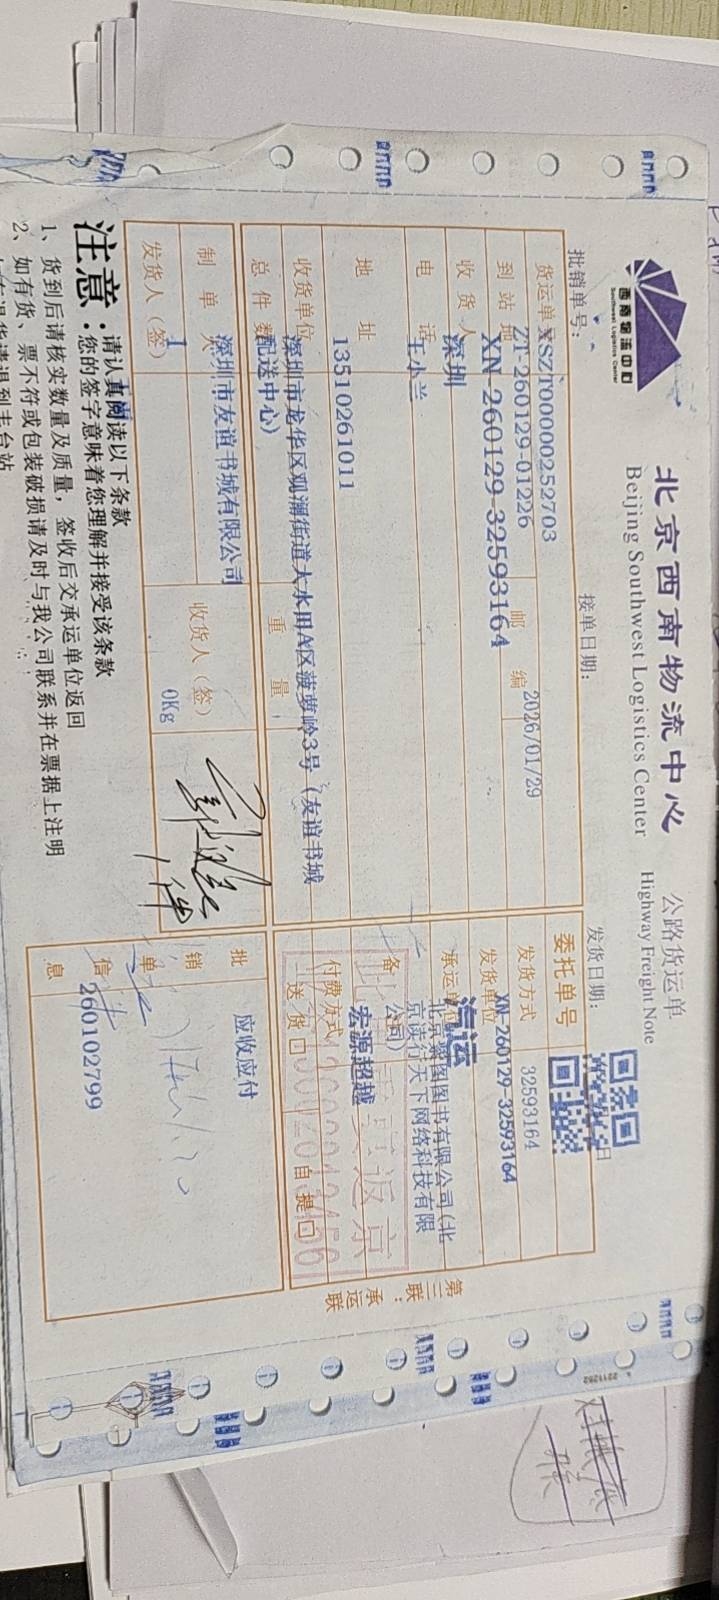 西南物流中心
Southwest Logistics Center
北京西南物流中心
Beijing Southwest Logistics Center
公路货运单
Highway Freight Note
批销单号：
接单日期：
发货日期：
日
货运单
XSZT00000252703
ZT-260129-01226
2026/01/29
到站地
XN-260129-32593164
邮 编
收货人
深圳
电 话
王小兰
地 址
13510261011
收货单位
深圳市龙华区观澜街道大水田A区菠萝岭3号（友谊书城
配送中心）
总 件 数
重 量
制 单 人
深圳市友谊书城有限公司
收货人（签）
0Kg
发货人（签）
1
委托单号
32593164
发货方式
XN-260129-32593164
发货单位
汽运
承运单位
北京聚图图书有限公司(北
京读行天下网络科技有限
公司)
备
宏源超越
付费方式
送 货 □
自 提 □
返京
批 销 单 信 息
应收应付
260102799
第三联：承运联
注意：
请认真阅读以下条款
您的签字意味着您理解并接受该条款
1、货到后请核实数量及质量，签收后交承运单位返回
2、如有货、票不符或包装破损请及时与我公司联系并在票据上注明